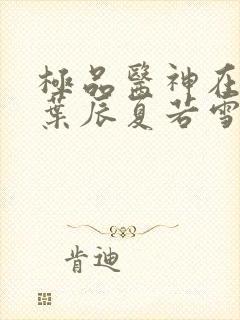 極品醫神在
葉辰夏若雪
肯迪